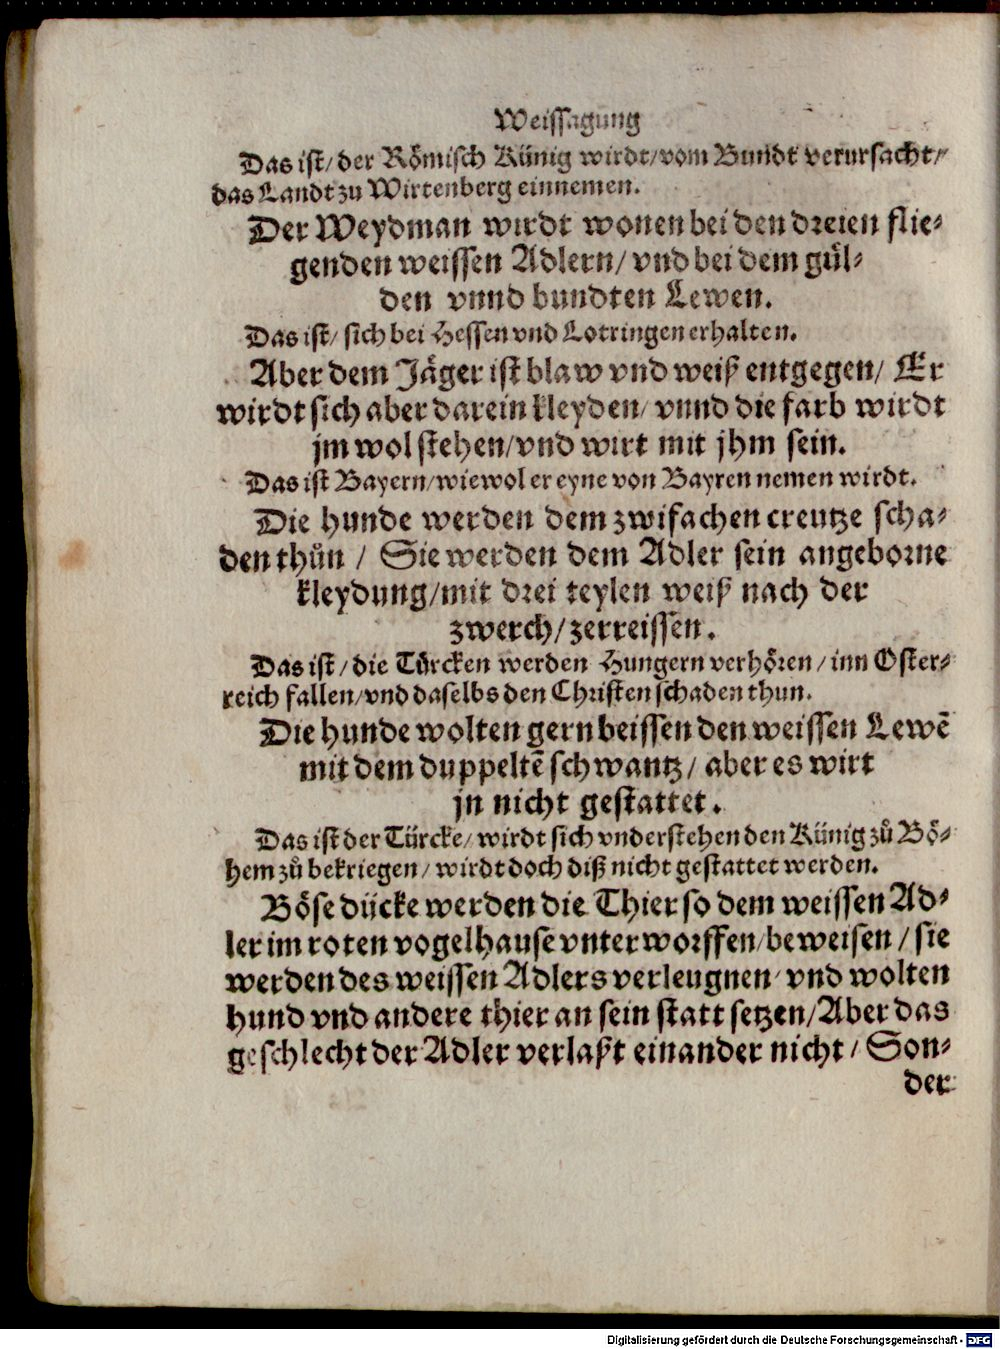 Weissagung
Das ist/ der Römisch Künig wirdt/ vom Bundt verursacht/
das Landt zu Wirtenberg einnemen.
Der Weydman wirdt wonen bei den dreien flie-
genden weissen Adlern/ vnd bei dem gül-
den vnnd bundten Lewen.
Das ist/ sich bei Hessen vnd Lotringen erhalten.
Aber dem Jäger ist blaw vnd weiß entgegen/ Er
wirdt sich aber darein kleyden/ vnnd die farb wirdt
jm wol stehen/ vnd wirt mit jhm sein.
Das ist Bayern/ wiewol er eyne von Bayren nemen wirdt.
Die hunde werden dem zwifachen creutze scha-
den thůn / Sie werden dem Adler sein angeborne
kleydung/ mit drei teylen weiß nach der
zwerch/ zerreissen.
Das ist/ die Türcken werden Hungern verhören/ inn Oster-
reich fallen/ vnd daselbs den Christen schaden thun.
Die hunde wolten gern beissen den weissen Lewē
mit dem duppeltē schwantz/ aber es wirt
jn nicht gestattet.
Das ist der Türcke/ wirdt sich vnderstehen den Künig zů Bö-
hem zů bekriegen/ wirdt doch diß nicht gestattet werden.
Böse dücke werden die Thier so dem weissen Ad-
ler im roten vogelhause vnterworffen/ beweisen / sie
werden des weissen Adlers verleugnen/ vnd wolten
hund vnd andere thier an sein statt setzen/ Aber das
geschlecht der Adler verlaßt einander nicht/ Son-
der
Digitalisierung gefördert durch die Deutsche Forschungsgemeinschaft - DFG